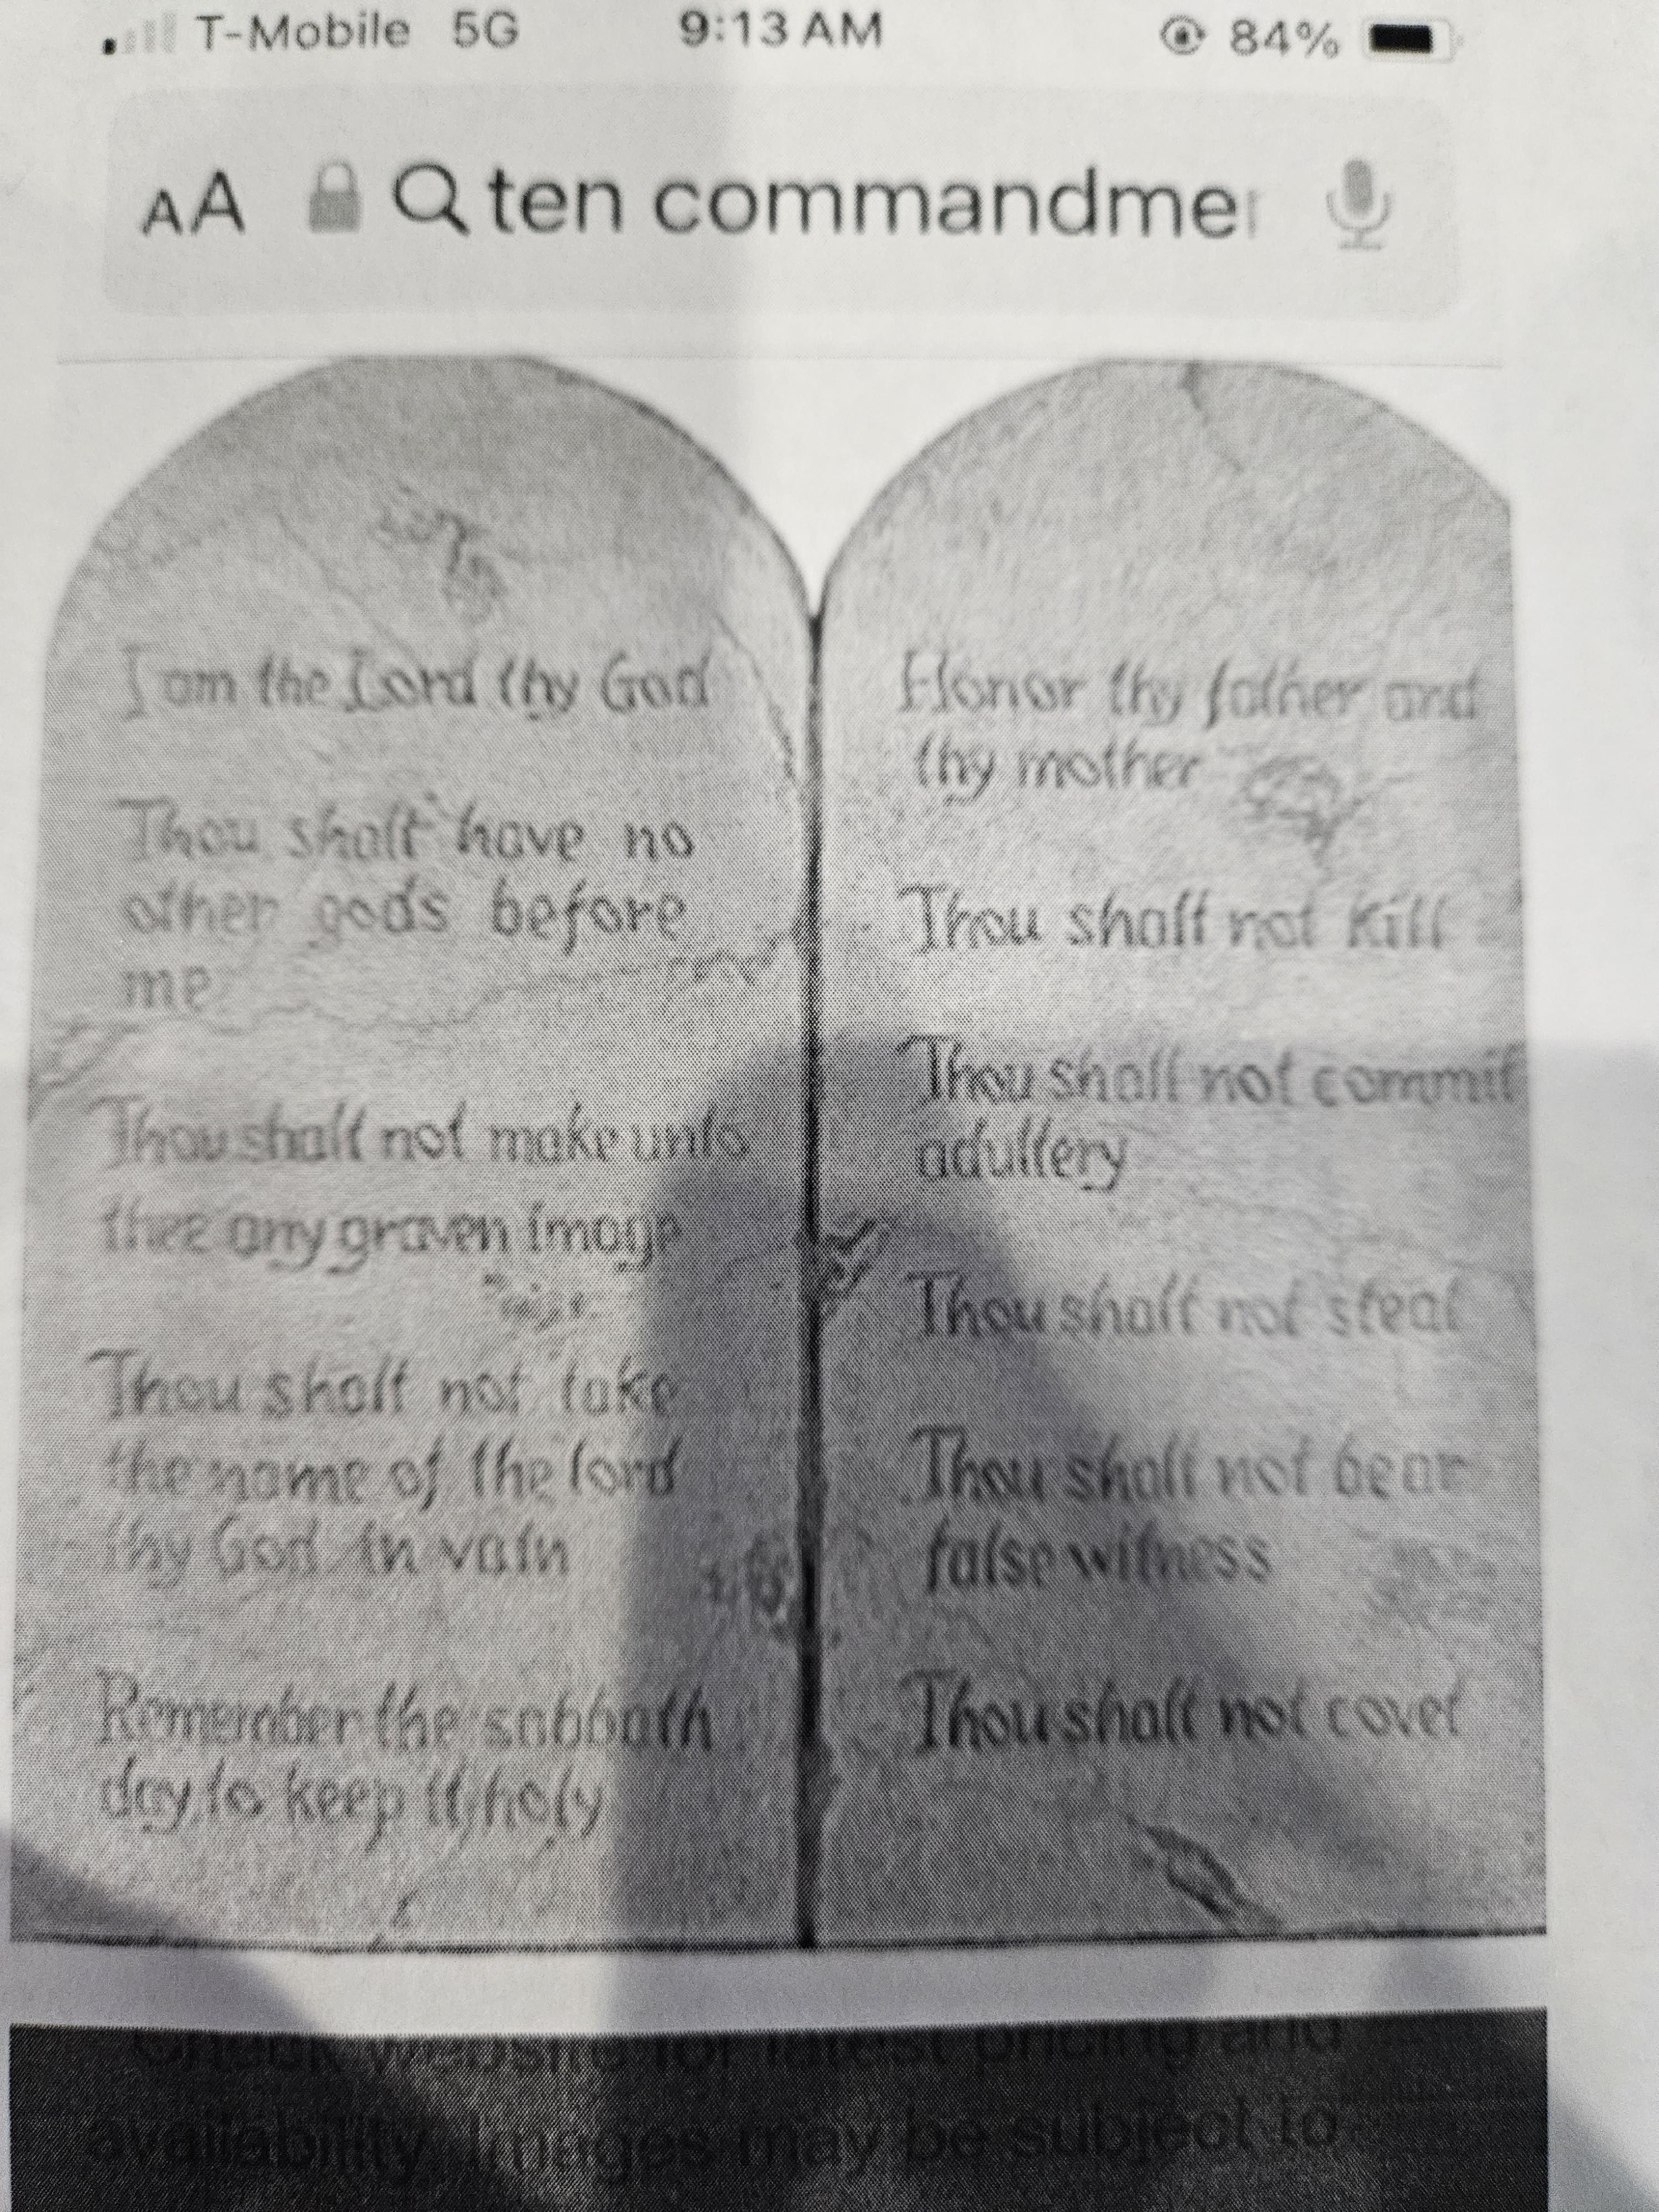 T-Mobile 5G 9:13 AM 84%
AA ten commandme
I am the Lord thy God
Thou shalt have no
other gods before
me
Thou shalt not make unto
thee any graven image
Thou shalt not take
the name of the lord
thy God in vain
Remember the sabbath
day to keep it holy
Honor thy father and
thy mother
Thou shalt not kill
Thou shalt not commit
adultery
Thou shalt not steal
Thou shalt not bear
false witness
Thou shalt not covet
Check website for latest pricing and
availability. Images may be subject to